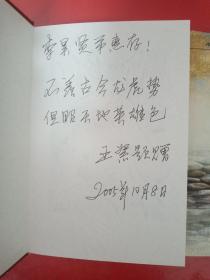 李军贤弟惠存！
不羡古今龙虎势
但昭天地英雄色
王黎题赠
2005年10月8日